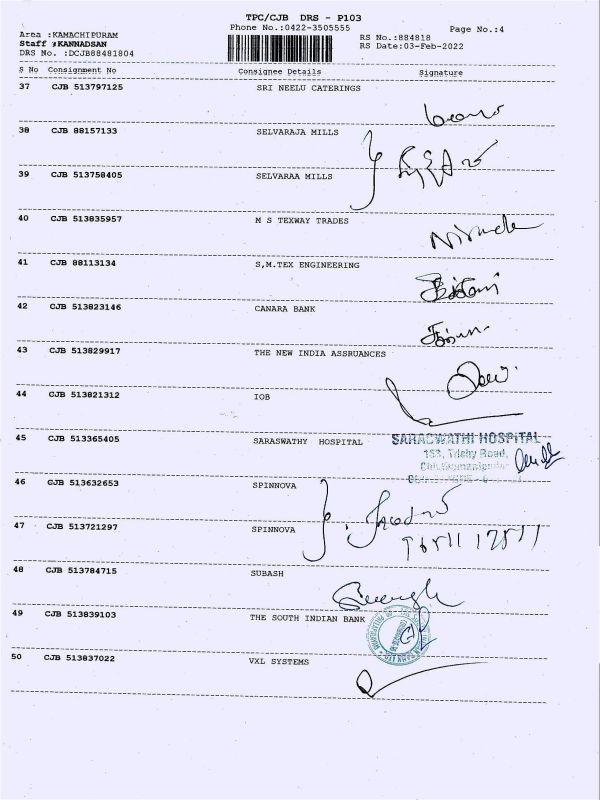 TPC/CJB DRS - P103
Phone No.:0422-3505555
Page No.:4
Area :KAMACHIPURAM
RS No.:884818
Staff :KANNADSAN
RS Date:03-Feb-2022
DRS No. :DCJB88481804
S No Consignment No Consignee Details Signature
37 CJB 513797125 SRI NEELU CATERINGS
38 CJB 88157133 SELVARAJA MILLS
39 CJB 513758405 SELVARAA MILLS
40 CJB 513835957 M S TEXWAY TRADES
Nirmala
41 CJB 88113134 S,M.TEX ENGINEERING
42 CJB 513823146 CANARA BANK
43 CJB 513829917 THE NEW INDIA ASSRUANCES
44 CJB 513821312 IOB
45 CJB 513365405 SARASWATHY HOSPITAL
SARASWATHI HOSPITAL
153, Trichy Road,
46 CJB 513632653 SPINNOVA
47 CJB 513721297 SPINNOVA
48 CJB 513784715 SUBASH
49 CJB 513839103 THE SOUTH INDIAN BANK
50 CJB 513837022 VXL SYSTEMS